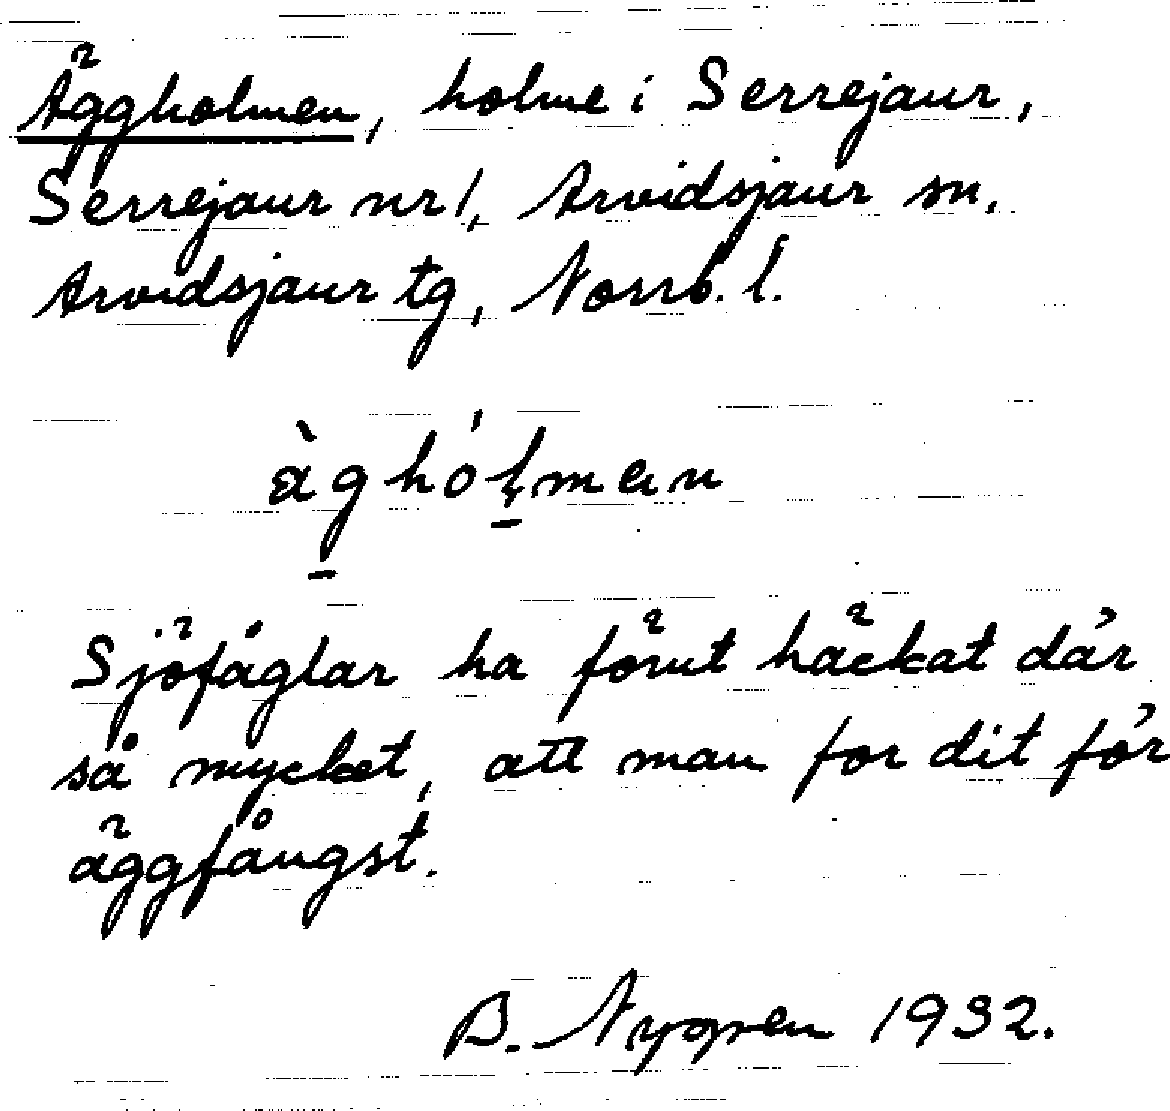 Äggholmen, holme i Serrejaur,
Serrejaur nr 1, Arvidsjaur sn,
Arvidsjaur tg, Norrb. l.
Sjöfåglar ha förut häckat där
så mycket, att man for dit för
äggfångst.
B. Nygren 1932.